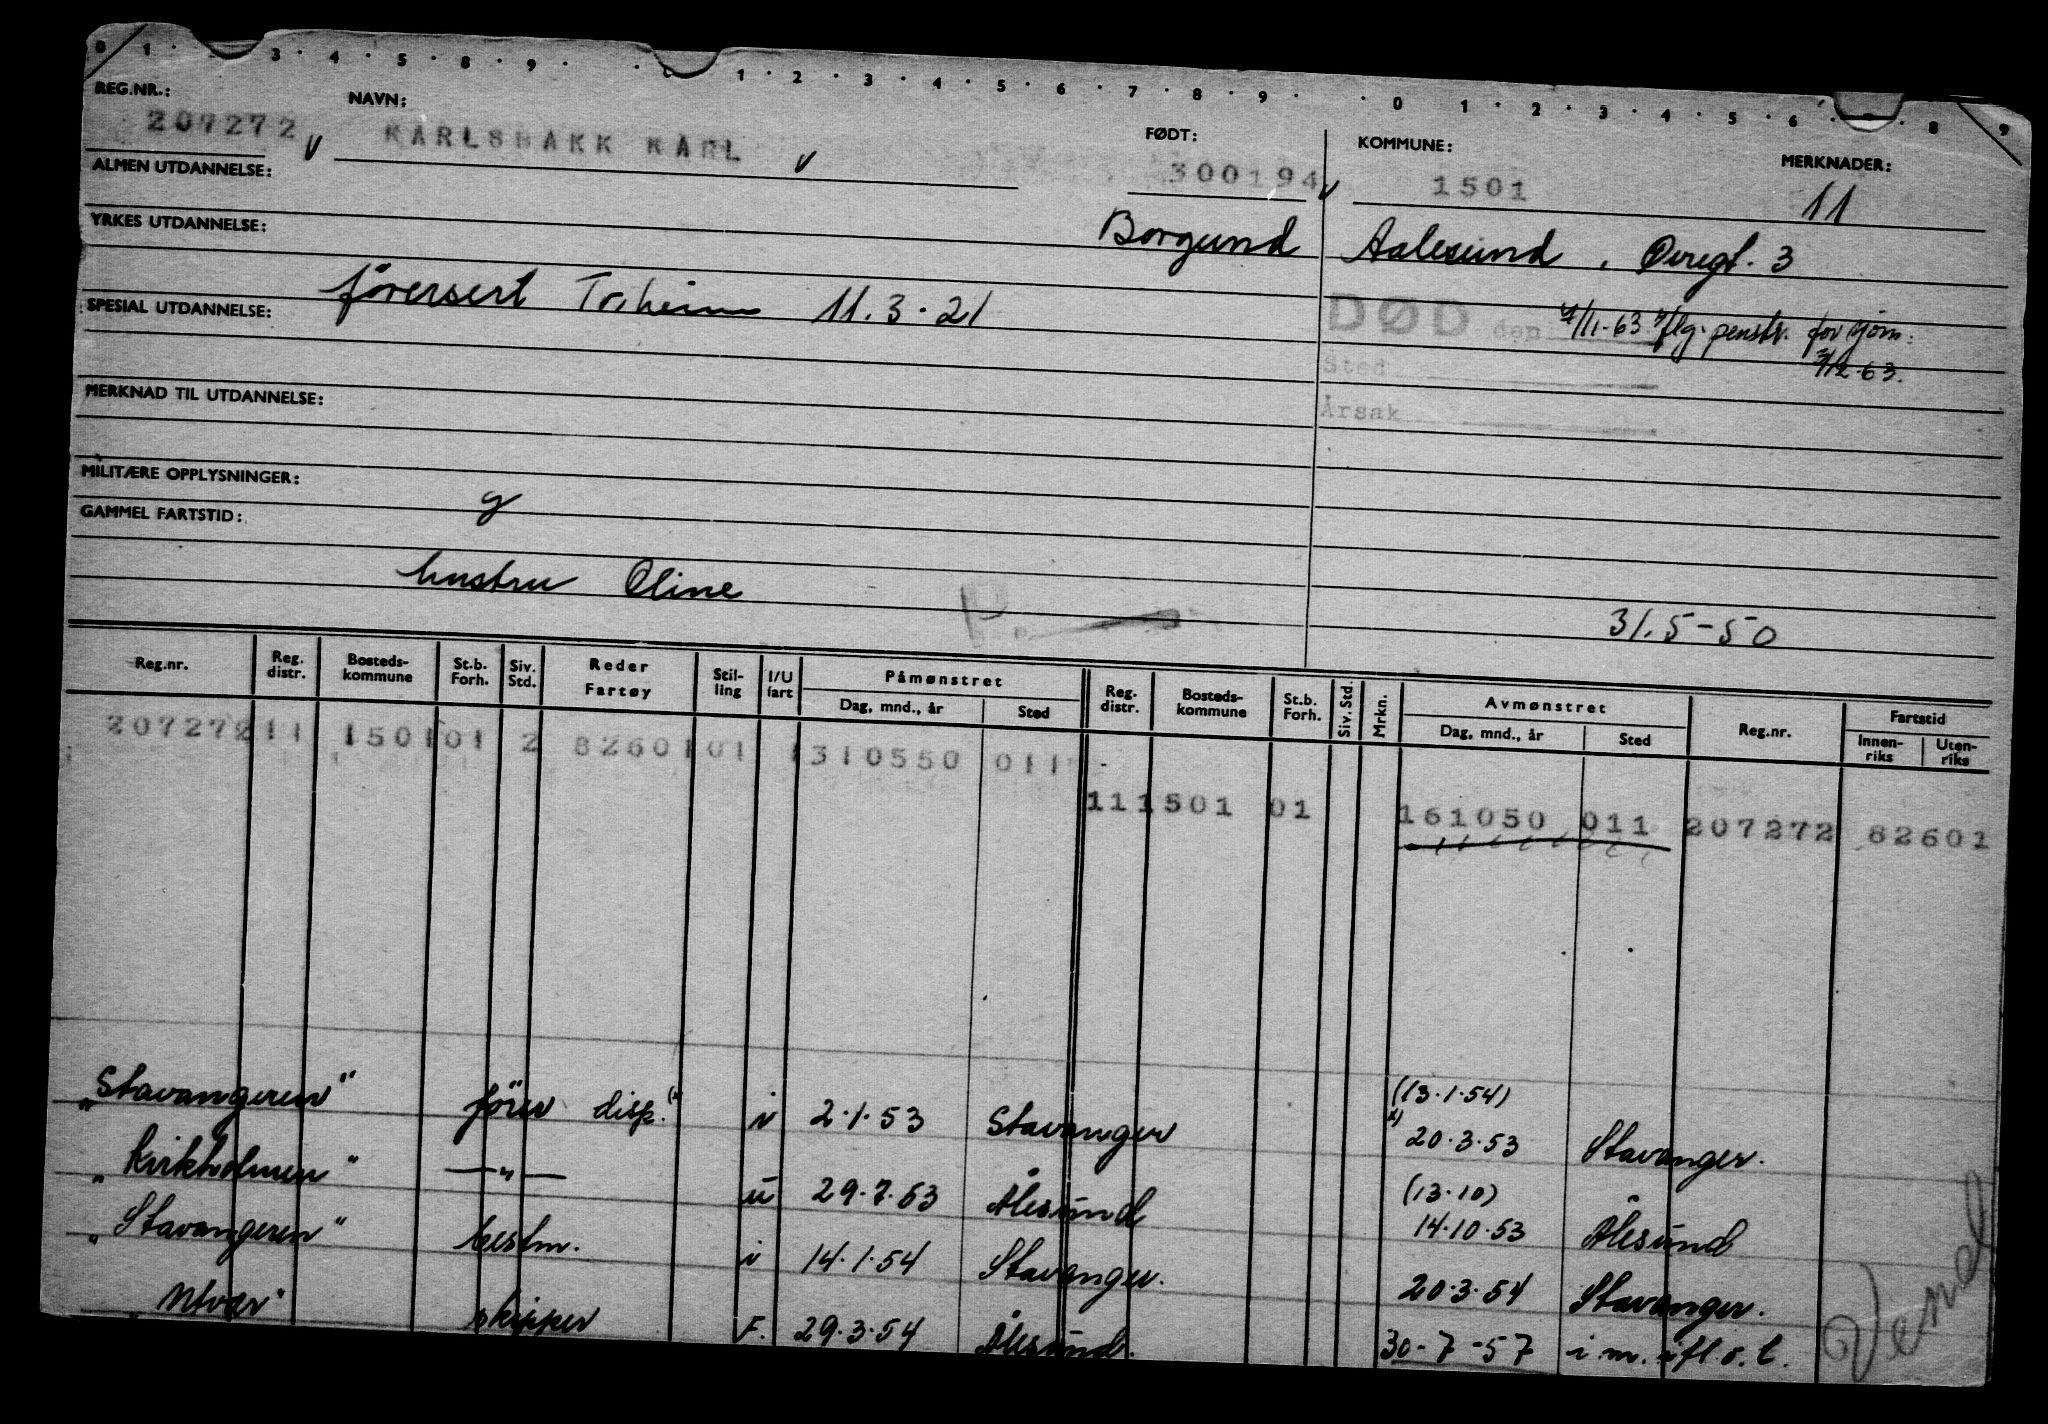 0 1 · 3 · 4 · 5 · 8 · 9 · · 1 · 2 · 3 · 4 · 5 · 6 · 7 · 8 · 9 · · 0 1 · 2 · 3 · 4 · 5 · 6 · · 8 9
REG.NR.: NAVN: FØDT: KOMMUNE: MERKNADER:
207272 v KARLSBAKK KARL v 300194 v 1501 11
ALMEN UTDANNELSE:
YRKES UTDANNELSE: Borgund Aalesund, Øvregt. 3
förersert Tr.heim 11.3.21
SPESIAL UTDANNELSE: DØD den 4/11-63 flg. penstr. for sjøm: 3/12-63.
Sted
MERKNAD TIL UTDANNELSE: Årsak
MILITÆRE OPPLYSNINGER:
GAMMEL FARTSTID: g
hustru Oline P.
31.5-50
Reg.nr. Reg. distr. Bosteds-kommune St.b. Forh. Siv. Std. Reder Fartøy Stil-ling I/U fart Påmønstret Dag, mnd., år Sted Reg. distr. Bosteds-kommune St.b. Forh. Siv. Std. Mrkn. Avmønstret Dag, mnd., år Sted Reg.nr. Fartstid Innen-riks Uten-riks
207272 11 1501 01 2 82601 01 1 310550 011
11 1501 01 161050 011 207272 82601
(13.1.54)
"Stavangeren" förer disp. (x i 2.1.53 Stavanger x) 20.3.53 Stavanger.
(13.10)
"Kirkholmen" —"— u 29.7.53 Ålesund 14.10.53 Ålesund
"Stavangeren" bestm. i 14.1.54 Stavanger. 20.3.54 Stavanger.
"Utvær" skipper F. 29.3.54 Ålesund. 30-7-57 i m.
Vend